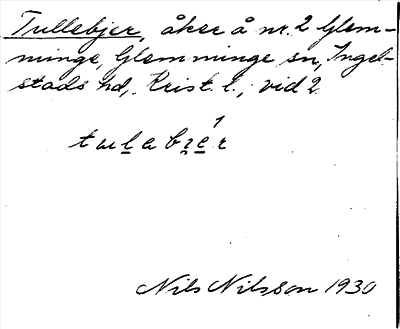 Tullebjer, åker å nr. 2 Glem-
minge, Glemminge sn, Ingel-
stads hd, Krist. l., vid 2.
Nils Nilsson 1930